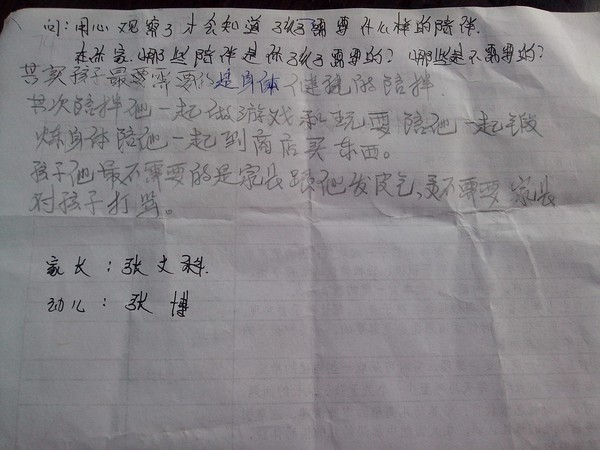 问：用心观察了才会知道孩子需要什么样的陪伴.
在你家.哪些陪伴是你孩子需要的？哪些是不需要的？
其实孩子最要需要的是身体健康的陪拌.
其次陪拌他一起做游戏和玩耍 陪他一起锻
炼身体陪他一起到商店买东西。
孩子他最不需要的是家长跟他发皮气,更不需要家长
对孩子打骂。
家长：张文科.
幼儿：张博